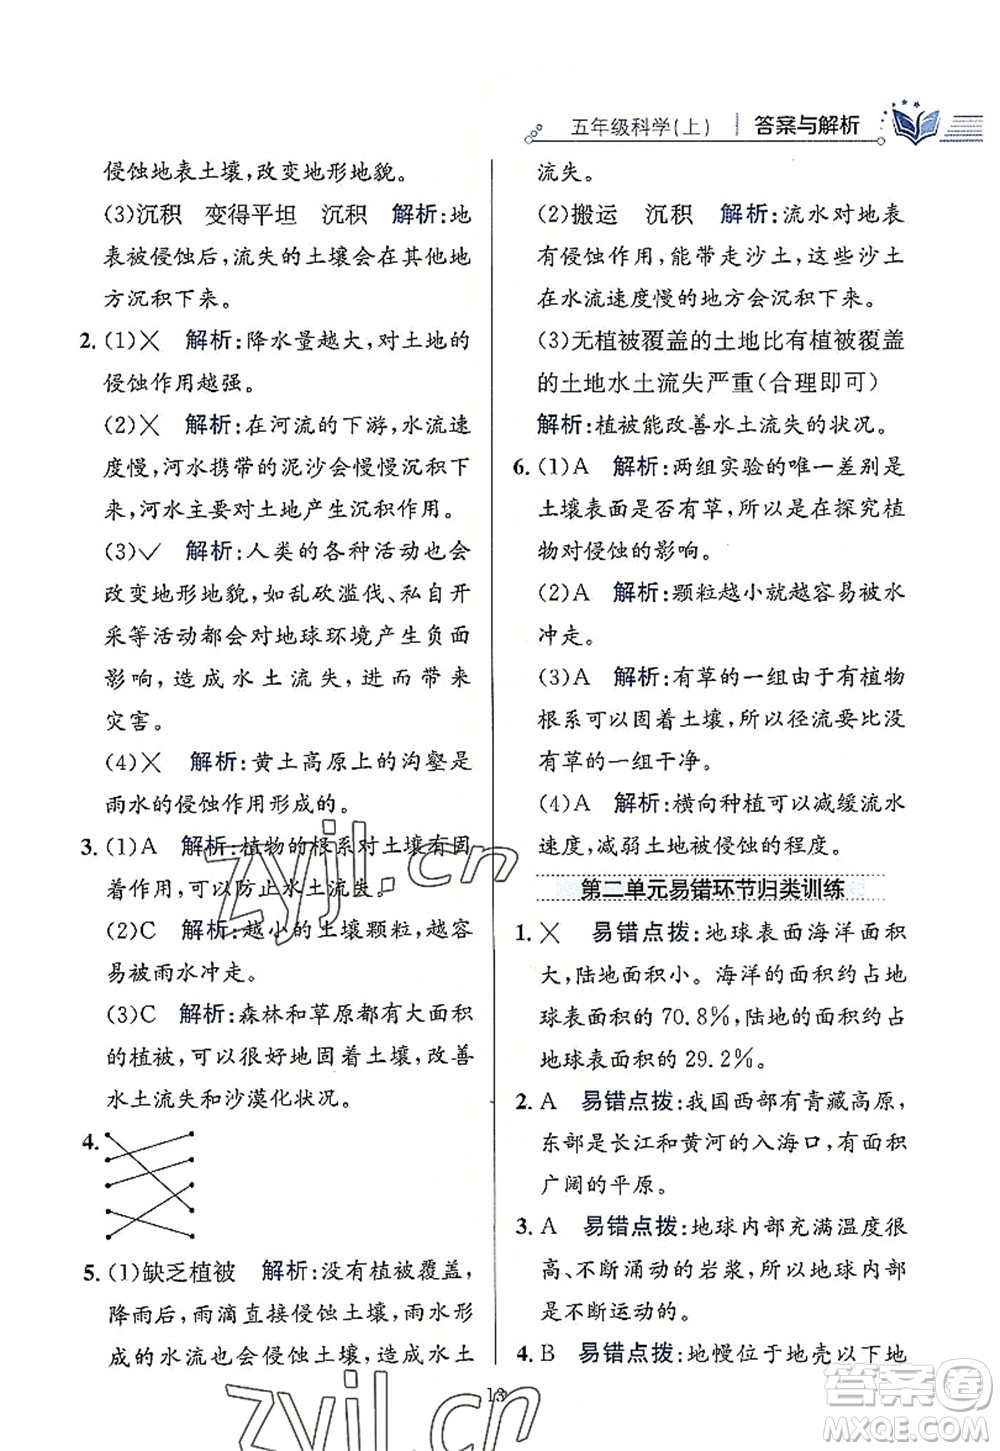 五年级科学(上) 答案与解析
侵蚀地表土壤,改变地形地貌。
(3)沉积 变得平坦 沉积 解析:地
表被侵蚀后,流失的土壤会在其他地
方沉积下来。
2. (1)✕ 解析:降水量越大,对土地的
侵蚀作用越强。
(2)✕ 解析:在河流的下游,水流速
度慢,河水携带的泥沙会慢慢沉积下
来,河水主要对土地产生沉积作用。
(3)✓ 解析:人类的各种活动也会
改变地形地貌,如乱砍滥伐、私自开
采等活动都会对地球环境产生负面
影响,造成水土流失,甚至带来
灾害。
(4)✕ 解析:黄土高原上的沟壑是
雨水的侵蚀作用形成的。
3. (1)A 解析:植物的根系对土壤有固
着作用,能防止水土流失。
(2)C 解析:越小的土壤颗粒,越容
易被雨水冲走。
(3)C 解析:森林和草原都有大面积
的植被,可以很好地固着土壤,改善
水土流失和沙漠化状况。
4.
5. (1)缺乏植被 解析:没有植被覆盖,
降雨后,雨滴直接侵蚀土壤,雨水形
成的水流也会侵蚀土壤,造成水土
流失。
(2)搬运 沉积 解析:流水对地表
有侵蚀作用,能带走沙土,这些沙土
在水流速度慢的地方会沉积下来。
(3)无植被覆盖的土地比有植被覆盖
的土地水土流失严重(合理即可)
解析:植被能改善水土流失的状况。
6. (1)A 解析:两组实验的唯一差别是
土壤表面是否有草,是在探究植
物对侵蚀的影响。
(2)A 解析:颗粒越小就越容易被水
冲走。
(3)A 解析:有草的一组由于有植物
根系可以固着土壤,径流要比没有
草的一组干净。
(4)A 解析:横向种植可以减缓流水
速度,减弱土地被侵蚀的程度。
第二单元易错环节归类训练
1. ✕ 易错点拨:地球表面海洋面积
大,陆地面积小。海洋的面积约占地
球表面积的 70.8%,陆地的面积约占
地球表面积的 29.2%。
2. A 易错点拨:我国西部有青藏高原,
东部是长江和黄河的入海口,有面积
广阔的平原。
3. A 易错点拨:地球内部充满温度很
高、不断涌动的岩浆,所以地球内部
是不断运动的。
4. B 易错点拨:地幔位于地壳以下地
13
zyjl.cn
zyjl.cn
答案圈
MXQE.COM